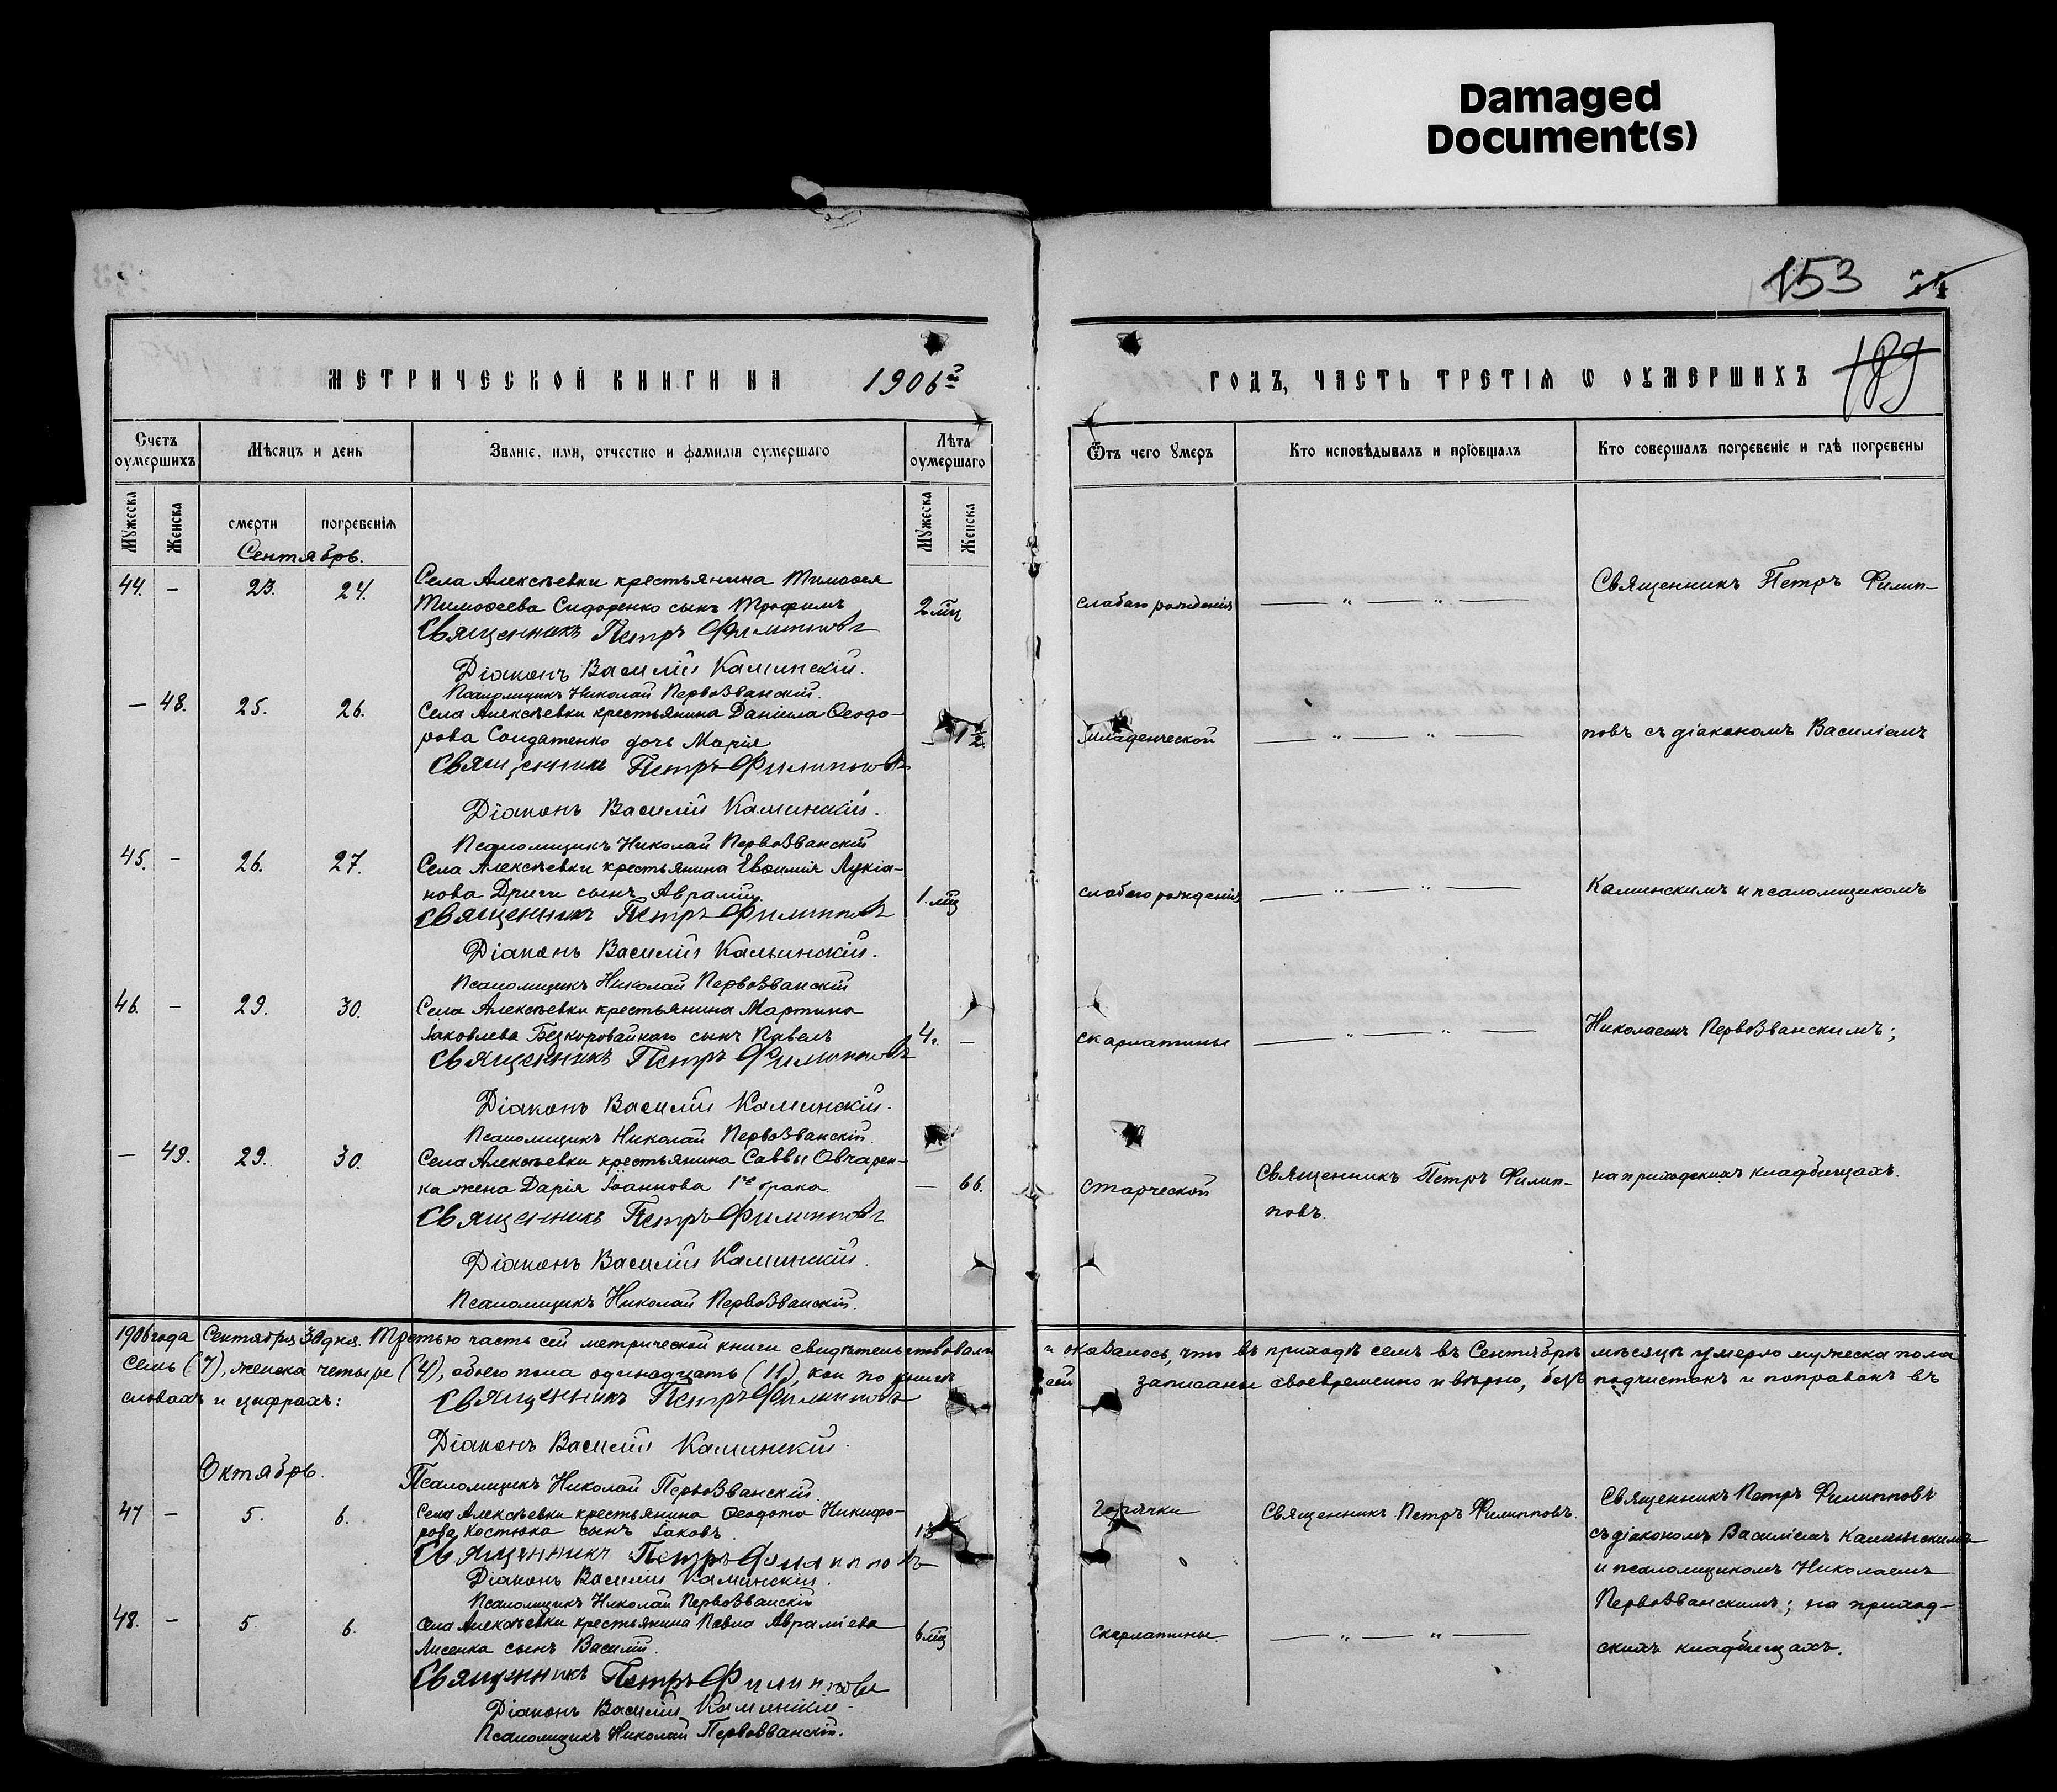 Damaged
Document(s)
153
189
МЕТРИЧЕСКОЙ КНИГИ НА 1906й
ГОДЪ, ЧАСТЬ ТРЕТІѦ Ѡ ОУМЕРШИХЪ
Счетъ оумершихъ
Мѣсяцъ и день
Званіе, имя, отчество и фамилія оумершаго
Лѣта оумершаго
Ѿтъ чего Умеръ
Кто исповѣдывалъ и пріобщалъ
Кто совершалъ погребеніе и гдѣ погребены
Мужеска
Женска
смерти
погребеніѧ
Мужеска
Женска
Сентябрь.
44. – 23. 24. Села Алексѣевки крестьянина Тимоѳея
Тимоѳеева Сидоренко сынъ Трофимъ 2 мц слабаго рожденія — „ — „ — Священникъ Петръ Филип-
Священникъ Петръ Филипповъ
Діаконъ Василій Каминскій.
Псаломщикъ Николай Первозванскій.
– 48. 25. 26. Села Алексѣевки крестьянина Даніила Ѳеодо-
рова Солдатенко дочь Марія – 1½ младенческой — „ — „ — повъ съ діакономъ Василіемъ
Священникъ Петръ Филипповъ
Діаконъ Василій Каминскій.
Псаломщикъ Николай Первозванскій
45. – 26. 27. Села Алексѣевки крестьянина Евѳимія Лукіа-
нова Дриги сынъ Аврамій 1. мц слабаго рожденія — „ — „ — Каминскимъ и псаломщикомъ
Священникъ Петръ Филипповъ
Діаконъ Василій Каминскій.
Псаломщикъ Николай Первозванскій
46. – 29. 30. Села Алексѣевки крестьянина Мартина
Іаковлева Безкоровайнаго сынъ Павелъ 4. – скарлатины — „ — „ — Николаемъ Первозванскимъ;
Священникъ Петръ Филипповъ
Діаконъ Василій Каминскій.
Псаломщикъ Николай Первозванскій.
– 49. 29. 30. Села Алексѣевки крестьянина Саввы Овчарен-
ка жена Дарія Іоаннова 1го брака. – 66. старческой Священникъ Петръ Филип-
повъ. на приходскихъ кладбищахъ.
Священникъ Петръ Филипповъ
Діаконъ Василій Каминскій.
Псаломщикъ Николай Первозванскій.
1906 года Сентября 30 дня. Третью часть сей метрической книги свидѣтельствовали и оказалось, что въ приходѣ семъ въ Сентябрѣ мѣсяцѣ умерло мужеска пола
семь (7), женска четыре (4), обоего пола одинадцать (11), кои по книгѣ сей записаны своевременно и вѣрно, безъ подчистокъ и поправокъ въ
словахъ и цифрахъ:
Священникъ Петръ Филипповъ
Діаконъ Василій Каминскій.
Псаломщикъ Николай Первозванскій.
Октябрь.
47 – 5. 6. Села Алексѣевки крестьянина Ѳеодота Никифо-
рова Костюка сынъ Іаковъ. горячки Священникъ Петръ Филипповъ. Священникъ Петръ Филипповъ
Священникъ Петръ Филипповъ съ діакономъ Василіемъ Каминскимъ
Діаконъ Василій Каминскій. и псаломщикомъ Николаемъ
Псаломщикъ Николай Первозванскій Первозванскимъ; на приход-
48. – 5. 6. Села Алексѣевки крестьянина Павла Авраміева
Лисенка сынъ Василій. 6 мц скарлатины. — „ — „ — скихъ кладбищахъ.
Священникъ Петръ Филипповъ
Діаконъ Василій Каминскій.
Псаломщикъ Николай Первозванскій.